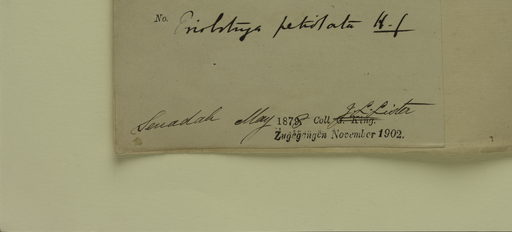 No. Eriobotrya petiolata H. f
Senadah May 1878 Coll. G. King. J. L. Lister
Zugegangen November 1902.